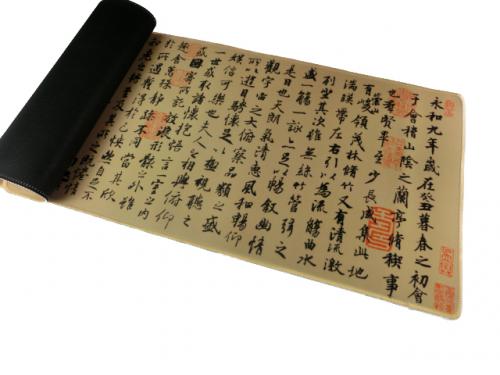 永和九年歲在癸丑暮春之初會
于會稽山陰之蘭亭脩稧事
也羣賢畢至少長咸集此地
有崇山峻領茂林脩竹又有清流激
湍暎帶左右引以為流觴曲水
列坐其次雖無絲竹管弦之
盛一觴一詠亦足以暢敘幽情
是日也天朗氣清惠風和暢仰
觀宇宙之大俯察品類之盛
所以遊目騁懷足以極視聽之
娛信可樂也夫人之相與俯仰
一世或取諸懷抱悟言一室之內
或因寄所託放浪形骸之外雖
趣舍萬殊靜躁不同當其欣
於所遇蹔得於己怏然自足不
知老之